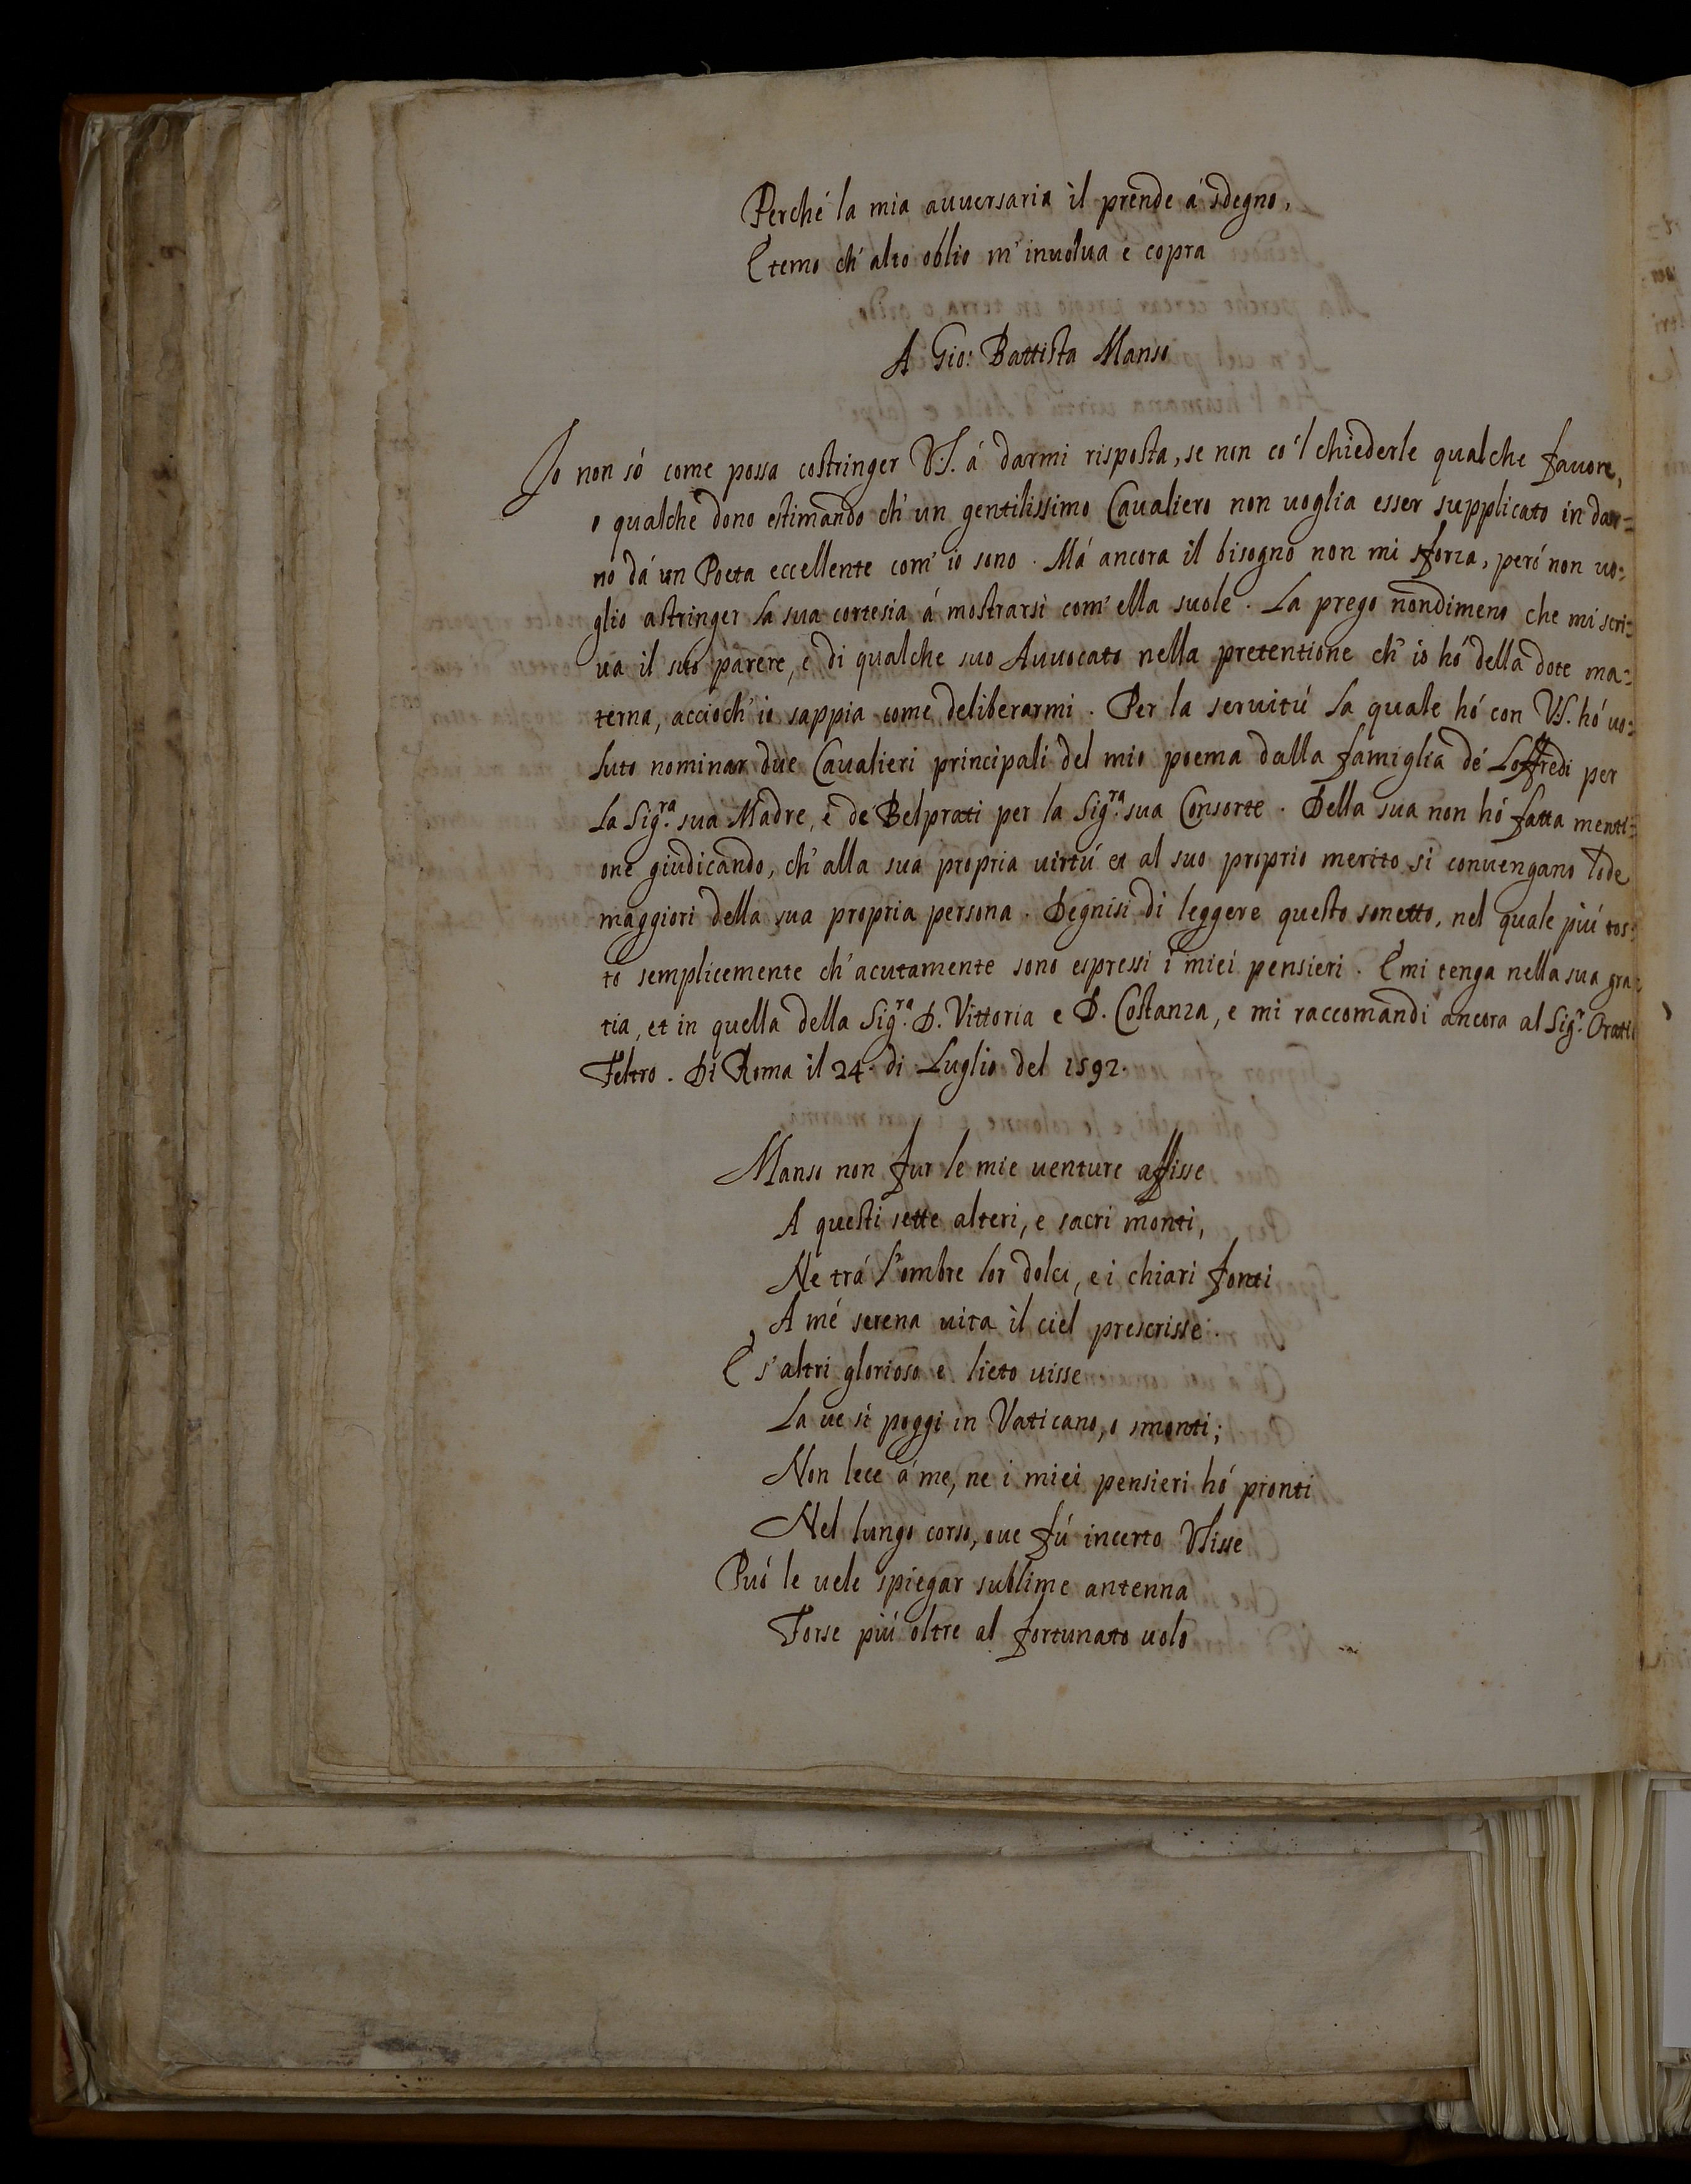 Perché la mia auuersaria il prende á sdegno,
E temo ch' alto oblio m' inuolua e copra
A Gio: Battista Manso
Io non só come possa costringer V.S. á darmi risposta, se non co 'l chiederle qualche fauore,
o qualche dono estimando ch' un gentilissimo Caualiero non uoglia esser supplicato in dar=
no dá un Poeta eccellente com' io sono. Má ancora il bisogno non mi sforza, peró non uo=
glio astringer la sua cortesia á mostrarsi com' ella suole. La prego nondimeno che mi scri=
ua il suo parere, e di qualche suo Auuocato nella pretentione ch' io hó della dote ma=
terna, accioch' io sappia come deliberarmi. Per la seruitú la quale hó con V.S. hó uo=
luto nominar due Caualieri principali del mio poema dalla famiglia dé Loffredi per
la Sig.ra sua Madre, e dé Belprati per la Sig.ra sua Consorte. Della sua non hó fatta menti=
one giudicando, ch' alla sua propria uirtú et al suo proprio merito si conuengano lode
maggiori della sua propria persona. Degnisi di leggere questo sonetto, nel quale piú tos=
to semplicemente ch' acutamente sono espressi i miei pensieri. E mi tenga nella sua gra=
tia, et in quella della Sig.ra D. Vittoria e D. Costanza, e mi raccomandi ancora al Sig.r Oratio
Feltro. Di Roma il 24. di Luglio del 1592.
Manso non fur le mie uenture affisse
A questi sette alteri, e sacri monti,
Ne trá l'ombre lor dolci, e i chiari fonti
A mé serena uita il ciel prescrisse.
E s' altri glorioso e lieto uisse
La ue si poggi in Vaticano, o smonti;
Non lece á me, ne i miei pensieri hó pronti
Nel lungo corso, oue fú incerto Vlisse
Puó le uele spiegar sublime antenna
Forse piú oltre al fortunato uolo